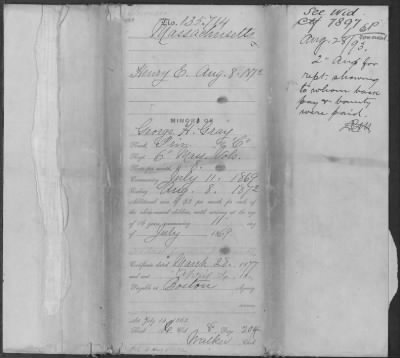 No. 135.714
Massachusetts
Henry E. Aug. 8. 1872
MINORS OF
George H. Gray
Rank Priv. Co.
Regt 6" Mass Vols.
Commencing July 11. 1869
Ending Aug. 8. 1872
additional sum of $2 per month for each of
the above-named children until arriving at the age
of 16 years, commencing 11 day
of July 1869
Certificate dated March 28. 1877
and sent
Payable at Boston Agency
Act July 14th 1862
Book C Vol. 8 Page 204
Walker Clerk
See Wid.
Ctf 7897
Aug. 28/93.
2" Aud for
rept. showing
to whom back
pay & bounty
were paid.